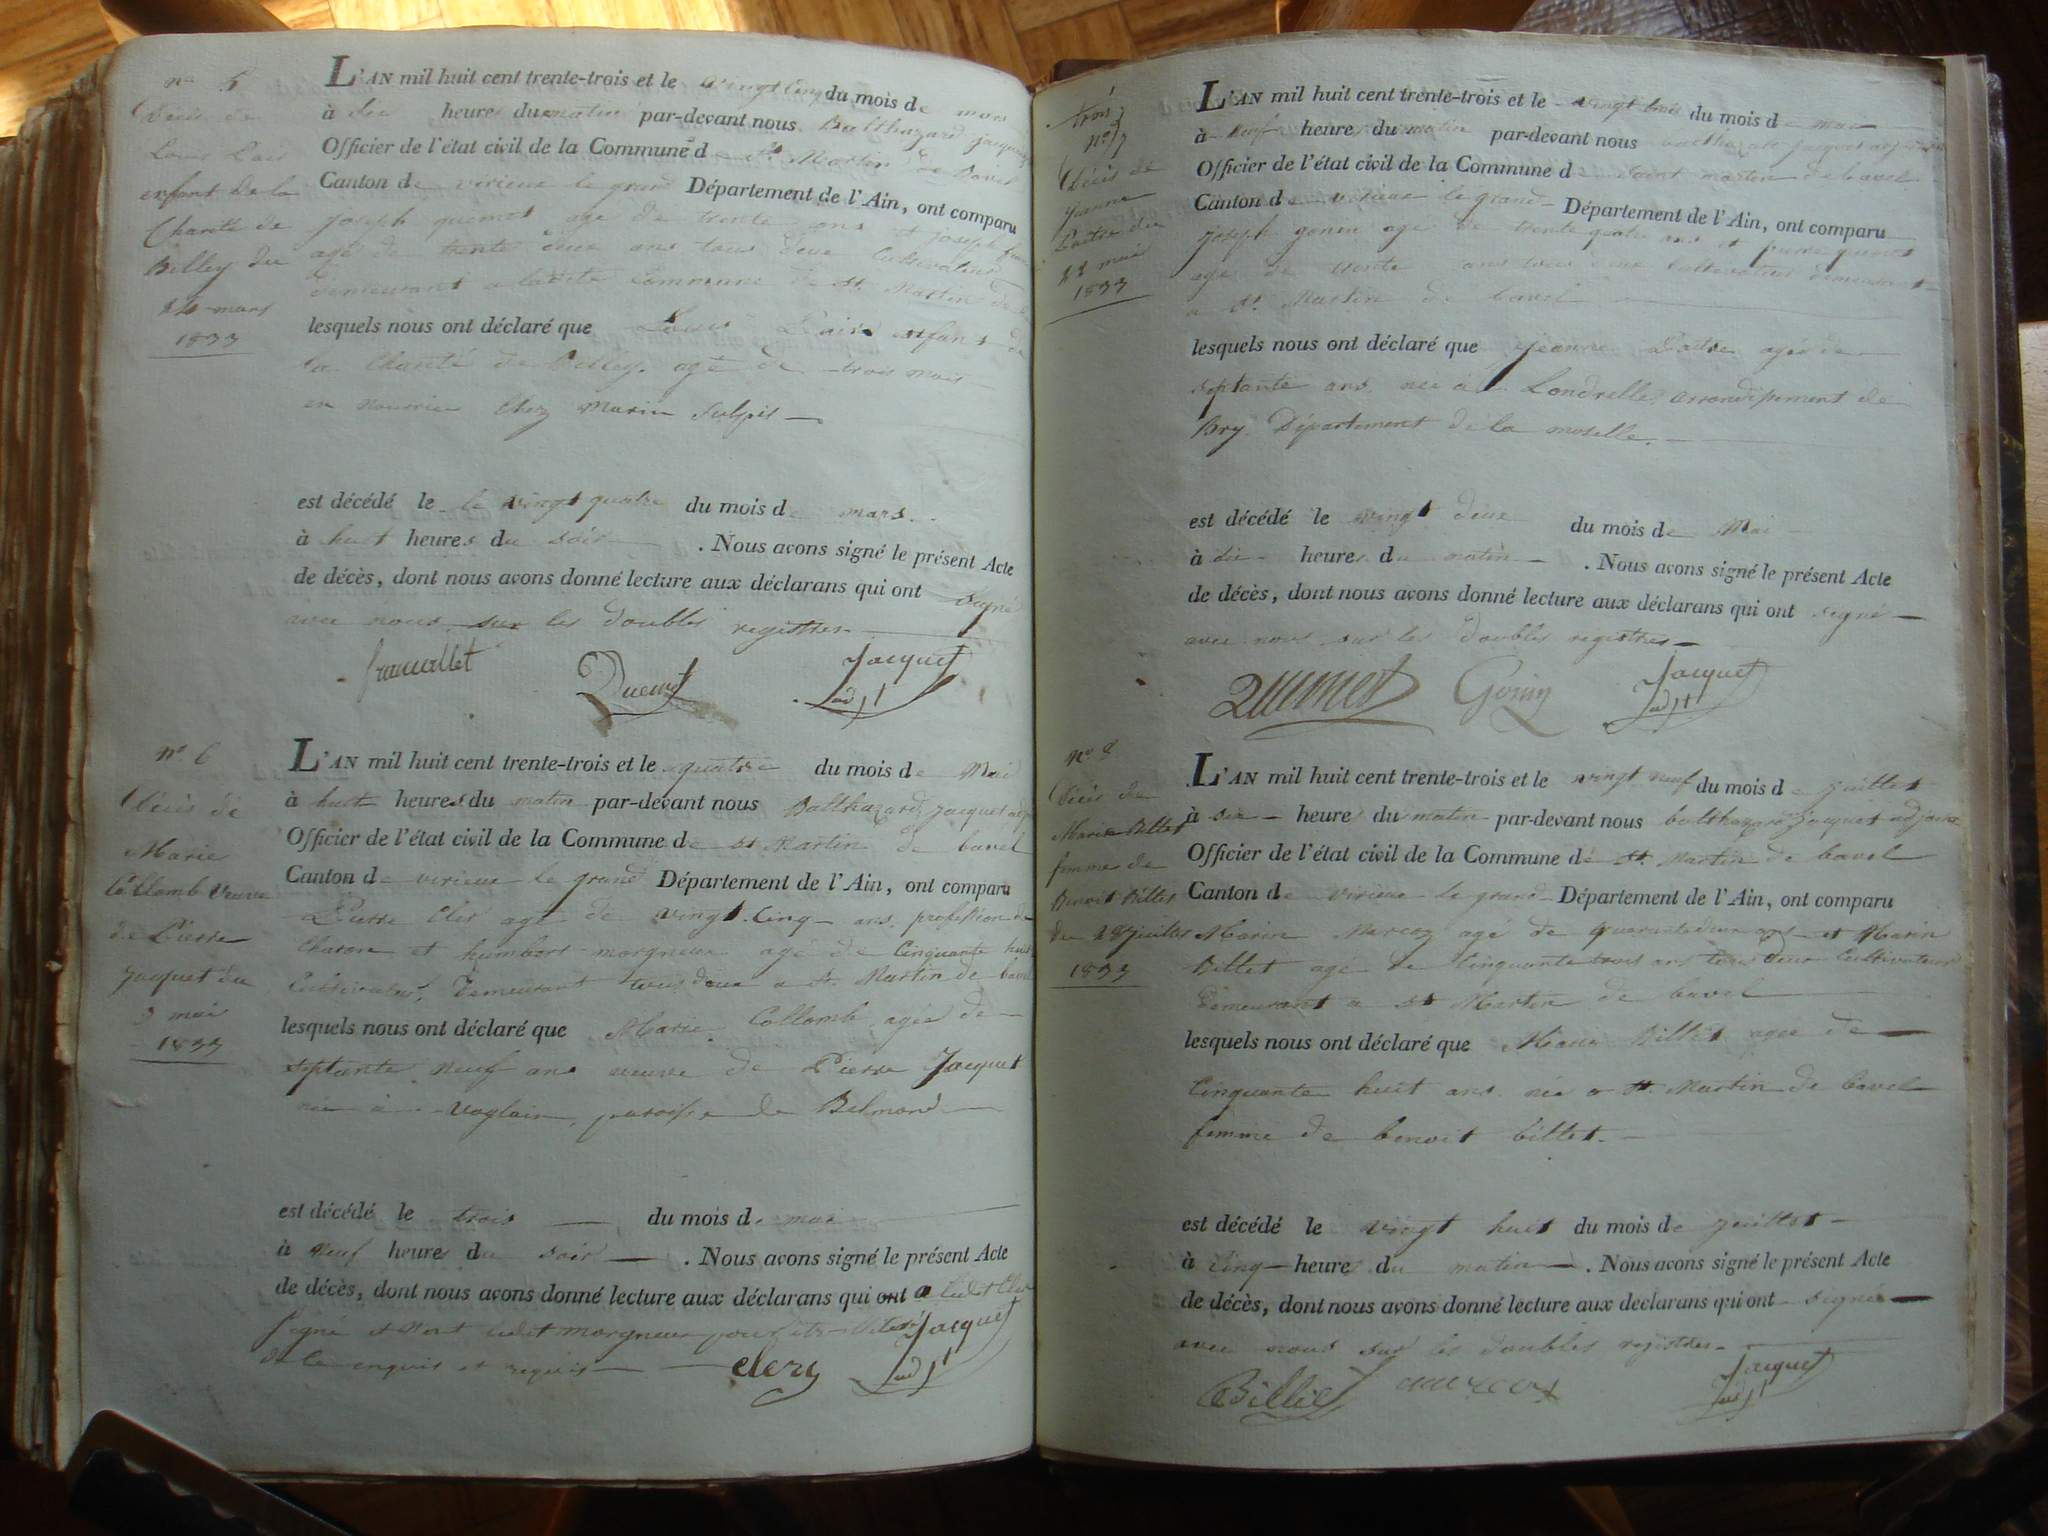 n° 5
Décès de
Louis Lair
enfant de la
Charité de
Belley du
24 mars
1833
L'AN mil huit cent trente-trois et le vingt cinq du mois de mars
à dix heures du matin par-devant nous Balthazard jacquet
Officier de l'état civil de la Commune de St Martin de Bavel
Canton de virieux le grand Département de l'Ain, ont comparu
joseph quemet age de trente ans et joseph
agé de trente deux ans tous deux Cultivateurs
demeurant a ladite Commune de St Martin de
lesquels nous ont déclaré que Louis Lair enfant de
la Charité de Belley, agé de trois mois
en nourrice Chez Marin Sulpis
est décédé le le vingt quatre du mois de mars.
à huit heures du soir . Nous avons signé le présent Acte
de décès, dont nous avons donné lecture aux déclarans qui ont signé
avec nous sur les doubles registres
francillet Quemet Jacquet adjt
n° 6
Décès de
Marie
Collomb veuve
de Pierre
jacquet du
3 mai
1833
L'AN mil huit cent trente-trois et le quatre du mois de Mai
à huit heures du matin par-devant nous Balthazard jacquet adj
Officier de l'état civil de la Commune de st Martin de bavel
Canton de virieux le grand Département de l'Ain, ont comparu
Pierre Cler agé de vingt-Cinq ans, profession de
Charon et humbert morgneux agé de Cinquante huit
Cultivateur, demeurant tous deux a St Martin de bavel
lesquels nous ont déclaré que Marie Collomb agée de
septante neuf ans veuve de Pierre Jacquet
née à Voglain, paroisse de Belmond
est décédé le trois du mois de mai
à neuf heures du soir . Nous avons signé le présent Acte
de décès, dont nous avons donné lecture aux déclarans qui ont a ledit Cler
signé et non ledit morgneux pour
de ce enquis et requis clerc Jacquet adjt
trois
n° 7
Décès de
Jeanne
Laitre du
22 mai
1833
L'AN mil huit cent trente-trois et le vingt trois du mois de mai
à neuf heures du matin par-devant nous balthazard jacquet adjoint
Officier de l'état civil de la Commune de saint martin de bavel
Canton de virieux le grand Département de l'Ain, ont comparu
joseph gonin age de trente quatre ans et pierre quemet
age de trente ans tous deux Cultivateurs demeurant
a St Martin de bavel
lesquels nous ont déclaré que jeanne Laitre agée de
septante ans née à Londrelle, arrondissement de
bry Département de la moselle.
est décédé le vingt deux du mois de Mai
à dix heures du matin . Nous avons signé le présent Acte
de décès, dont nous avons donné lecture aux déclarans qui ont signé
avec nous sur les doubles registres
Quemet Gonin Jacquet adjt
n° 8
Décès de
Marie Billet
femme de
Benoit Billet
du 28 juillet
1833
L'AN mil huit cent trente-trois et le vingt neuf du mois de juillet
à six heures du matin par-devant nous balthazard jacquet adjoint
Officier de l'état civil de la Commune de St Martin de bavel
Canton de virieux le grand Département de l'Ain, ont comparu
Marin Marcoz agé de quarante deux ans et Marin
Billet agé de Cinquante trois ans tous deux Cultivateurs
demeurant a st Martin de bavel
lesquels nous ont déclaré que Marie Billet agée de
Cinquante huit ans née a St Martin de bavel
femme de benoit billet.
est décédé le vingt huit du mois de juillet
à Cinq heures du matin . Nous avons signé le présent Acte
de décès, dont nous avons donné lecture aux déclarans qui ont signé
avec nous sur les doubles registres.
Billiet Jacquet adjt